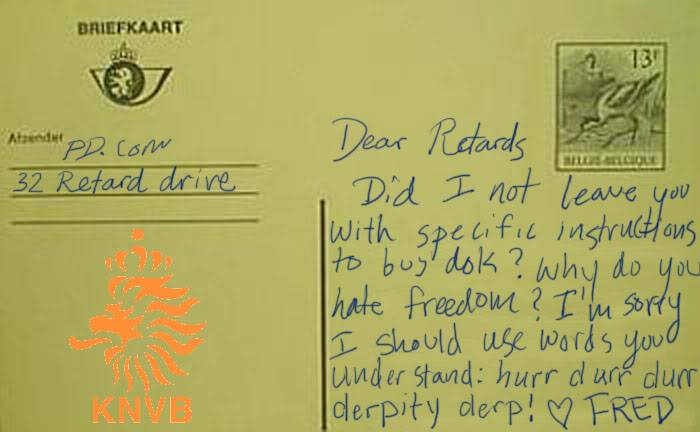 BRIEFKAART
Afzender
PD.com
32 Retard drive
KNVB
13F
BELGIË-BELGIQUE
Dear Retards
Did I not leave you
with specific instructions
to buy dok? Why do you
hate freedom? I'm sorry
I should use words you
understand: hurr durr durr
derpity derp! ♡ FRED